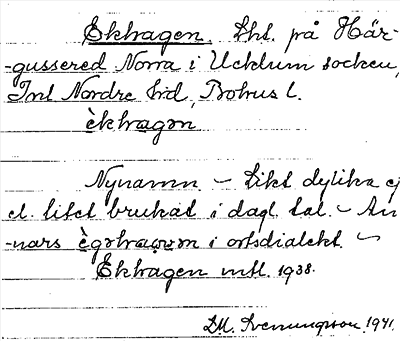 Ekhagen. Lht. på Här-
-gussered Norra i Ucklum socken,
Inl Nordre hd, Bohus l.
èkhagən
Nynamn. – Likt dylika ej
el. litet brukat i dagl. tal. – An
-nars i ortsdialekt. –
Ekhagen mtl. 1938.
1941.